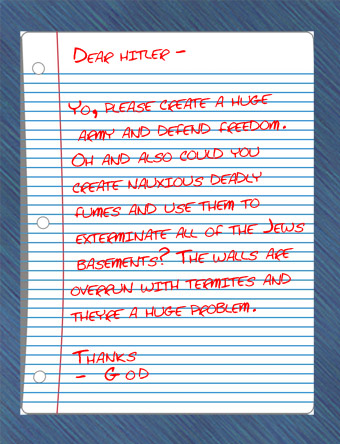 DEAR HITLER -
YO, PLEASE CREATE A HUGE
ARMY AND DEFEND FREEDOM.
OH AND ALSO COULD YOU
CREATE NAUXIOUS DEADLY
FUMES AND USE THEM TO
EXTERMINATE ALL OF THE JEWS
BASEMENTS? THE WALLS ARE
OVERRUN WITH TERMITES AND
THEYRE A HUGE PROBLEM.
THANKS
- GOD